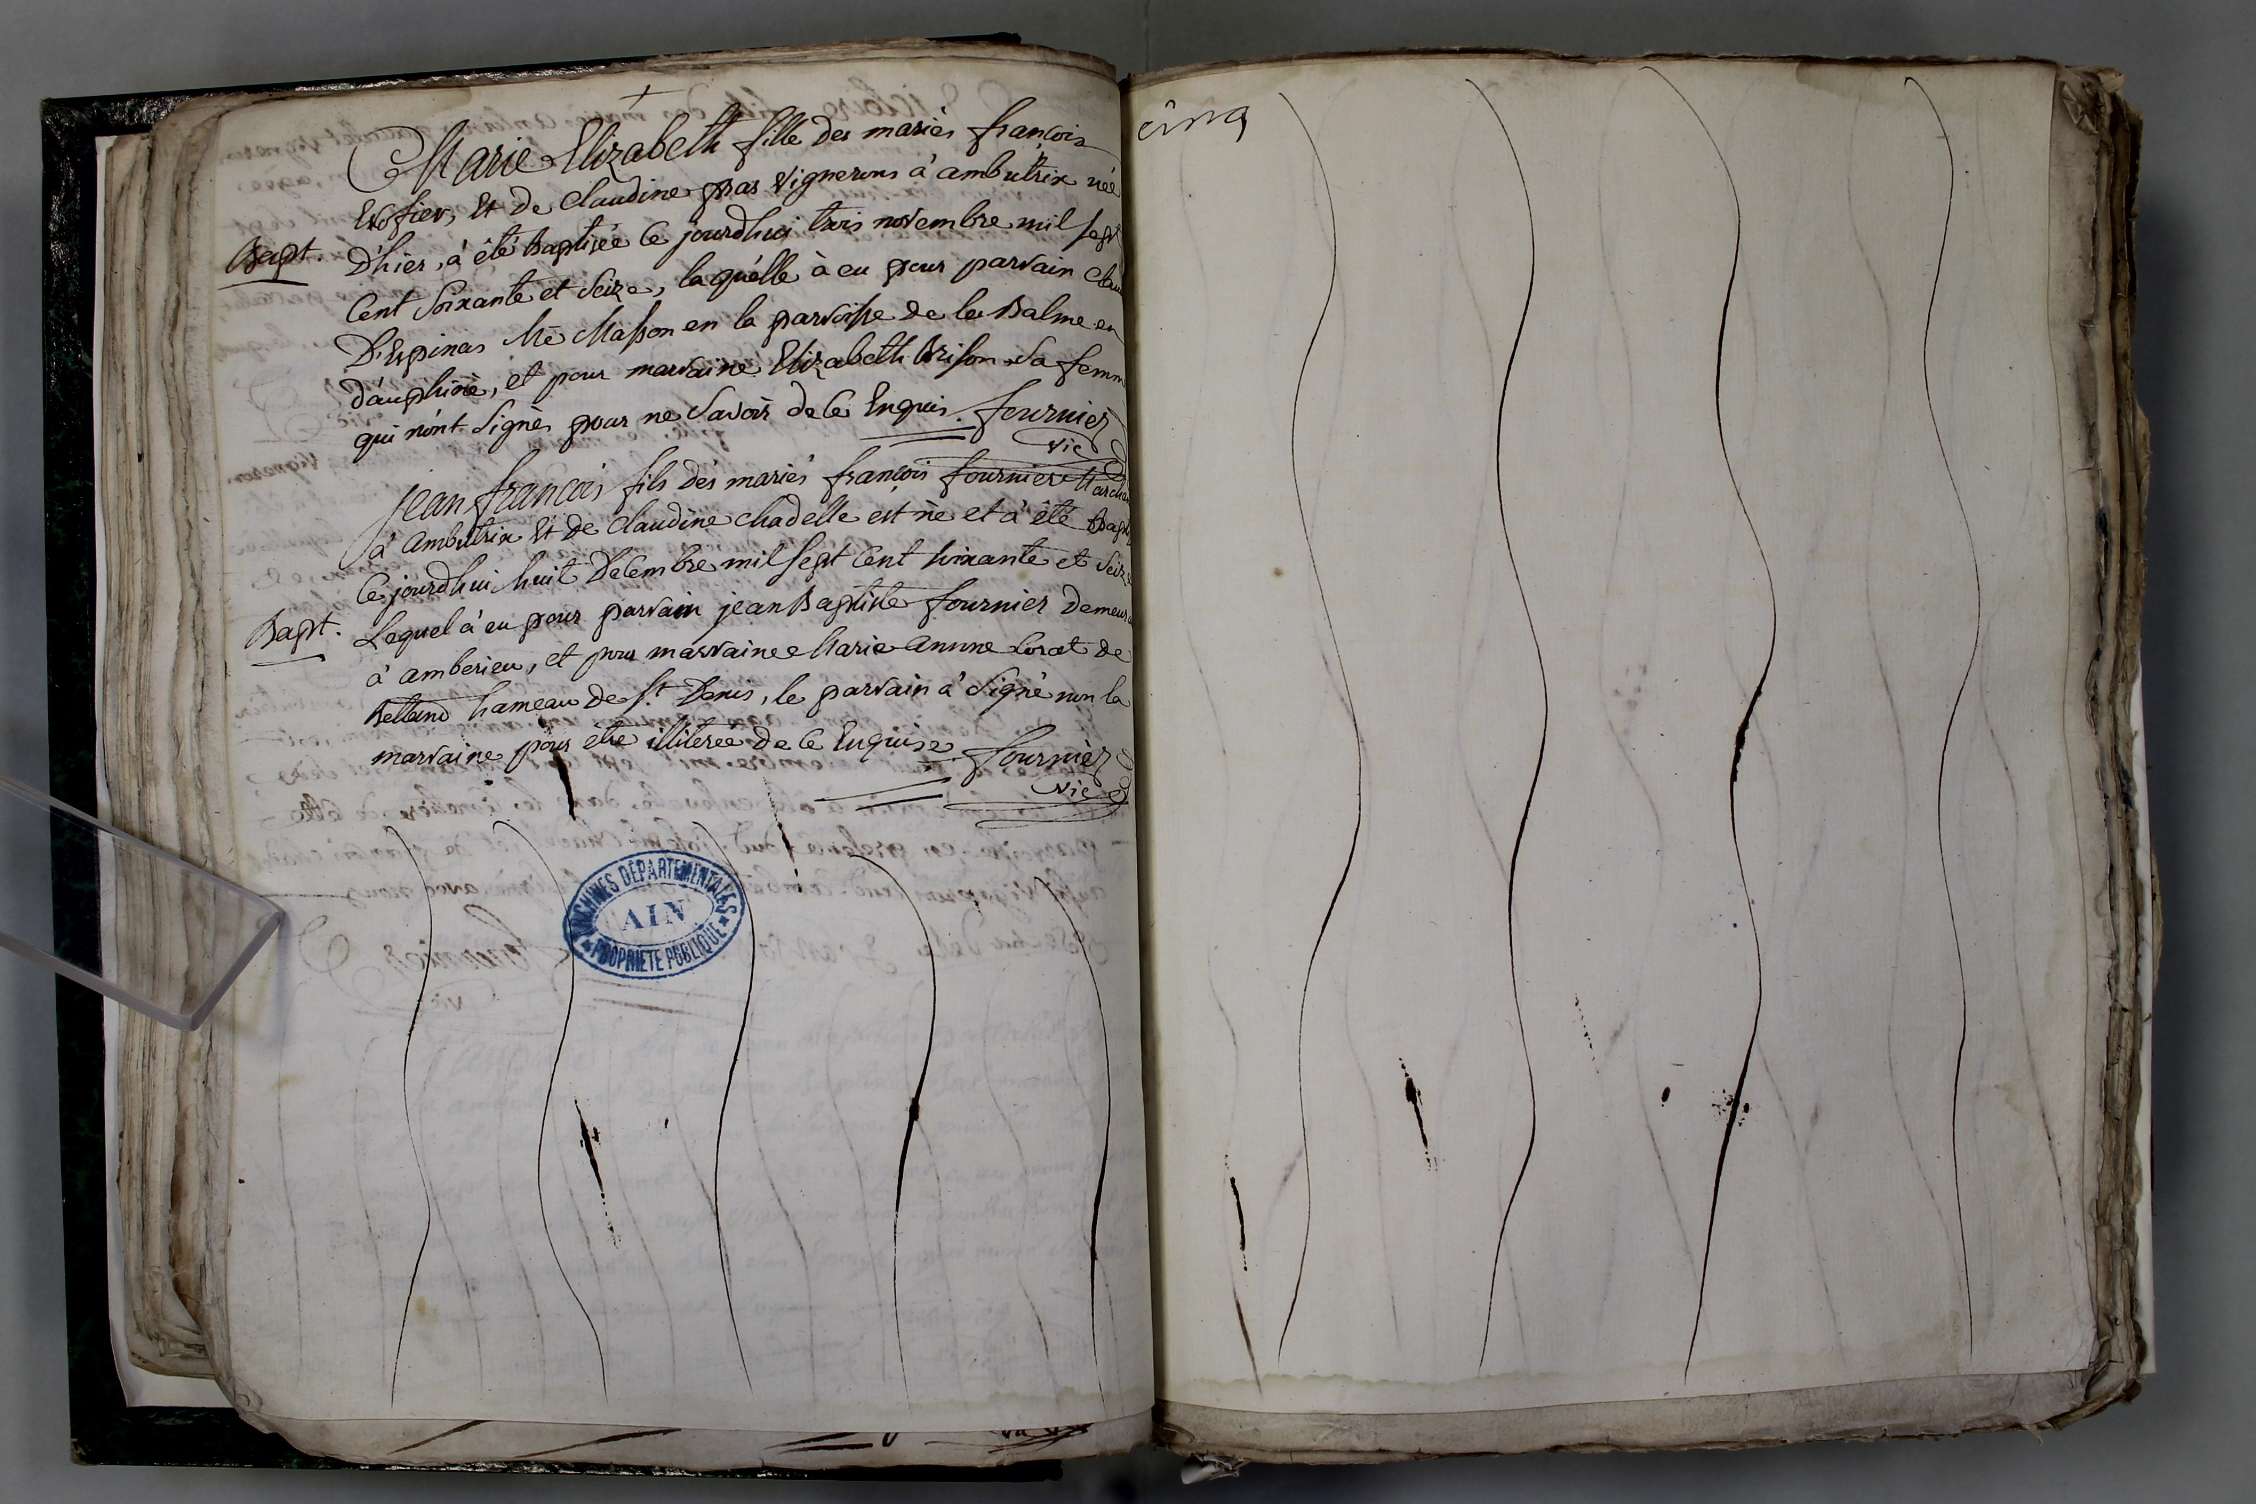 Marie Elizabeth fille des mariés françois
et de Claudine pras vignerons à ambutrix née
Bapt. D'hier, à été Baptisée ce jourdhui trois novembre mil sept
Cent Soixante et Seize, laquélle à eu pour parrain Clau
D'Espinas Me Masson en la parroisse de la Balme en
dauphiné, et pour marraine Elizabeth Brison Sa femm
qui n'ont Signés pour ne Savoir de ce Enquis. fournier
vic
jean françois fils des mariés françois fournier Marchan
à ambutrix Et de Claudine chadelle est né et à été Bapt
Ce jourdhui huit Decembre mil Sept Cent Soixante et Seize
Bapt. Lequel à eu pour parrain jean Baptiste fournier Demeura
à amberieu, et pour marraine Marie anne de
hameau de St. Denis, le parrain à Signé non la
marraine pour etre illiterée de ce Enquise fournier
vic
ARCHIVES DEPARTEMENTALES
AIN
PROPRIETE PUBLIQUE
cinq